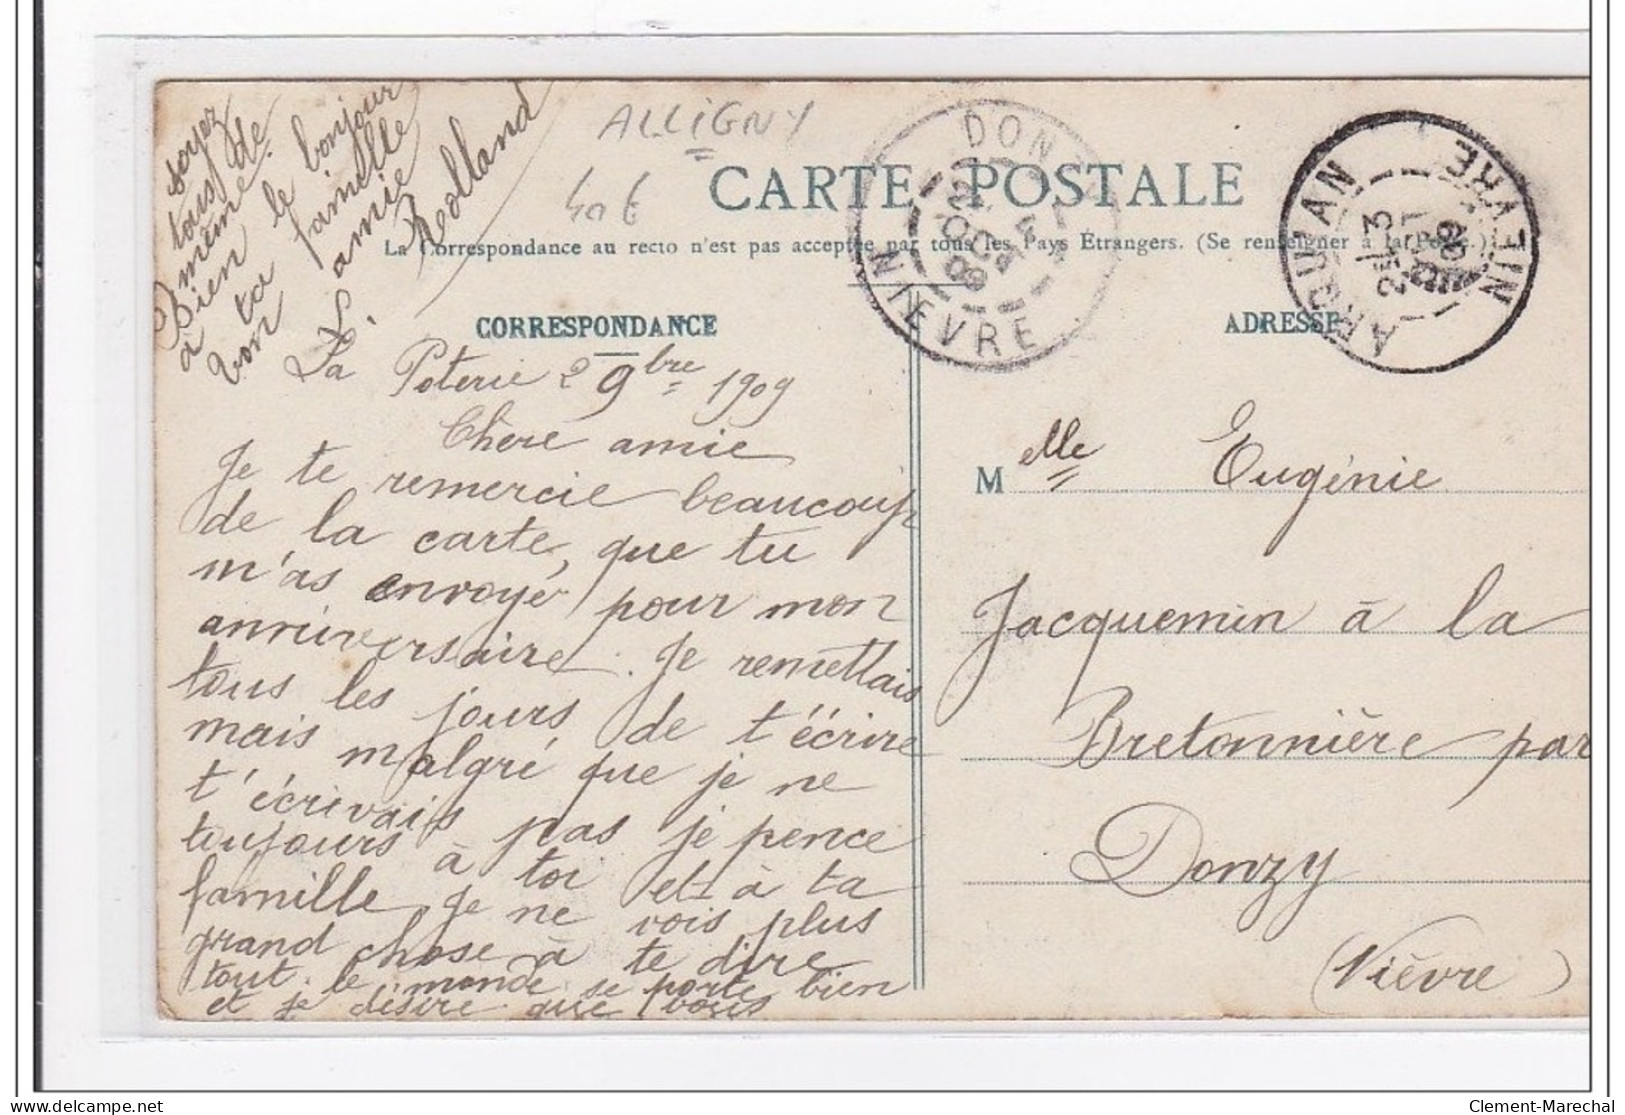 ALLIGNY
40 €
CARTE POSTALE
La Correspondance au recto n'est pas acceptée par tous les Pays Étrangers. (Se renseigner à la Poste.)
DON
NIEVRE
ARQUIAN
NIEVRE
CORRESPONDANCE
ADRESSE
La Poterie 2 9bre 1909
Chère amie
Je te remercie beaucoup
de la carte, que tu
m'as envoyé pour mon
anniversaire. Je remettais
tous les jours de t'écrire
mais malgré que je ne
t'écrivais pas je pence
toujours à toi et à ta
famille Je ne vois plus
grand chose à te dire
tout le monde se porte bien
et je désire que vous
soyez
tous de
même.
Bien le bonjour
à ta famille
ton amie
L. Reolland
M elle Eugénie
Jacquemin à la
Bretonnière par
Donzy
(Nièvre)
Clement-Marechal